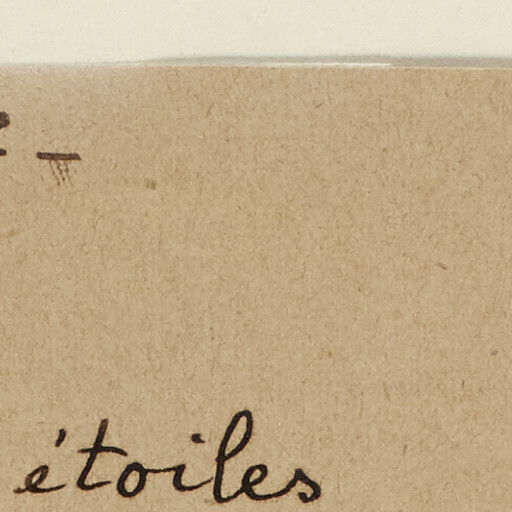 étoiles